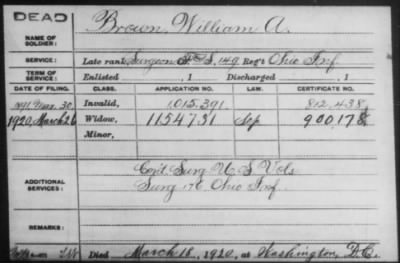 DEAD
NAME OF SOLDIER: Brown, William A.
SERVICE: Late rank, Surgeon F&S, 149 Reg't Ohio Inf.
TERM OF SERVICE: Enlisted , 1 Discharged , 1
DATE OF FILING. CLASS. APPLICATION NO. LAW. CERTIFICATE NO.
1891 Mar. 30, Invalid, 1,015,391 812,438
1920, March 26 Widow, 1154731 Sep 900,178
Minor,
ADDITIONAL SERVICES: Cont Surg U.S. Vols
Surg 176 Ohio Inf.
REMARKS:
Died March 18, 1920, at Washington, D.C.